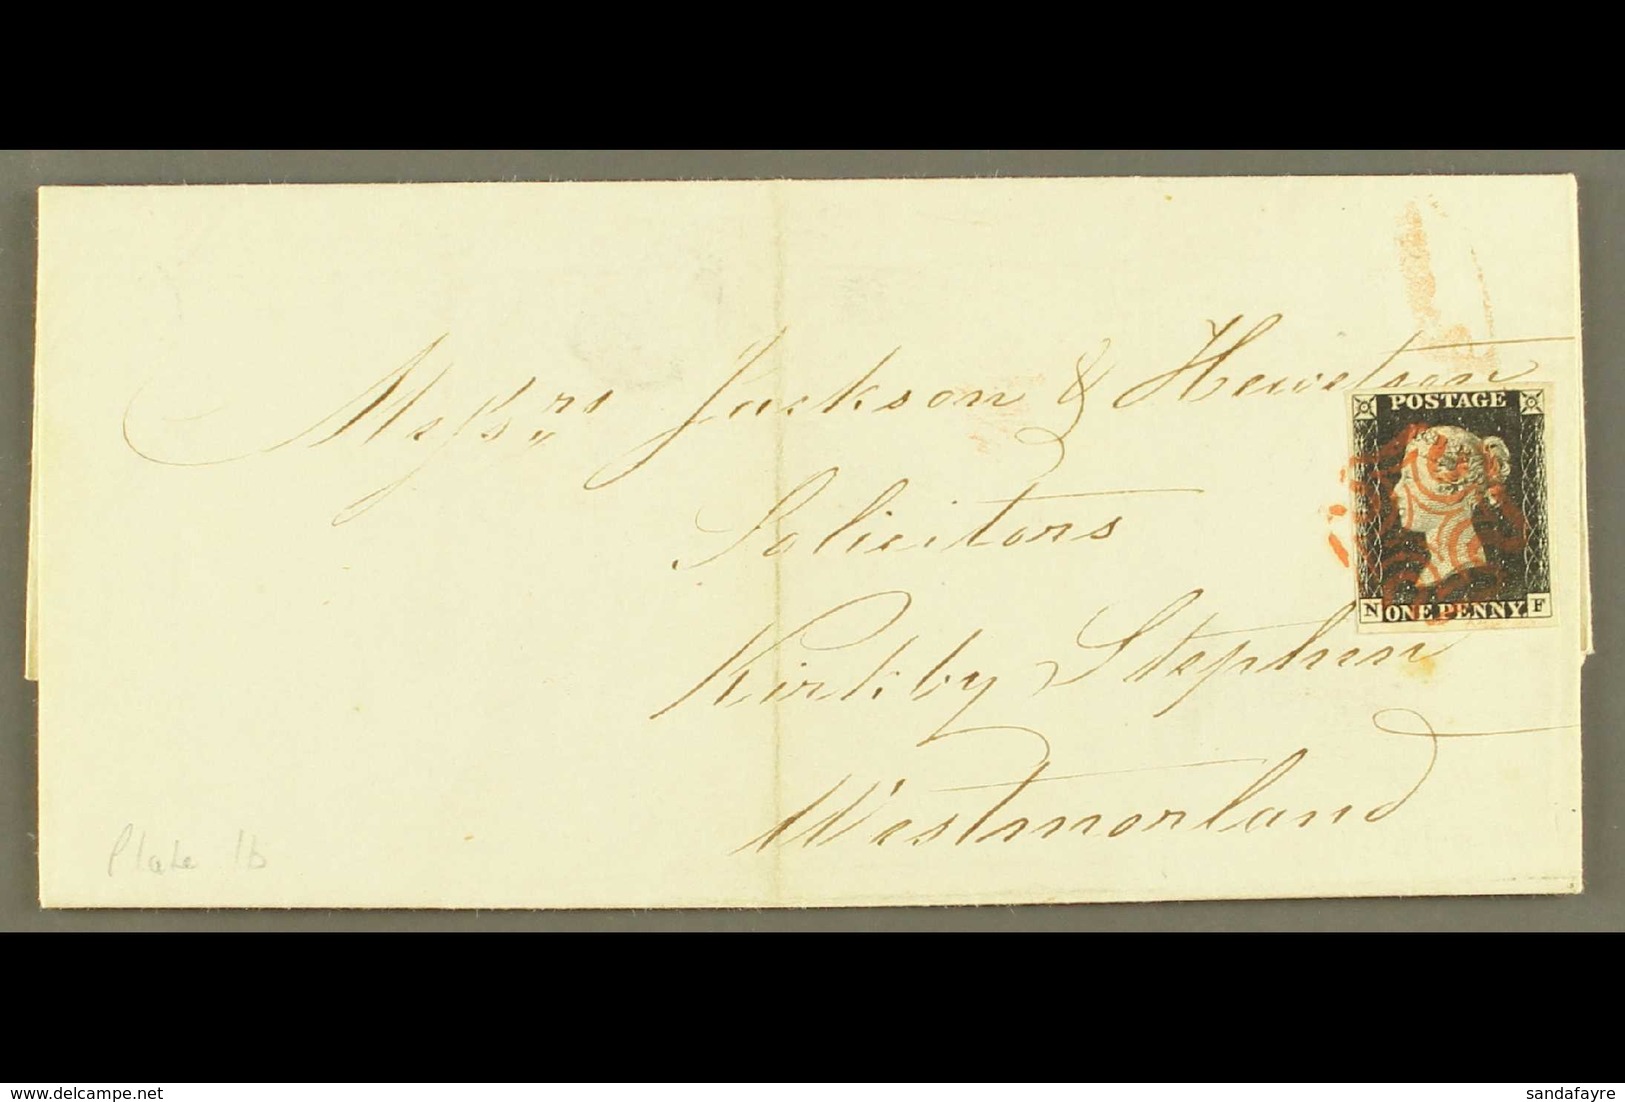 Messrs Jackson & Hewetson
Solicitors
Kirkby Stephen
Westmorland
POSTAGE
N ONE PENNY. F
Plate 1b
delcampe.net
sandafayre